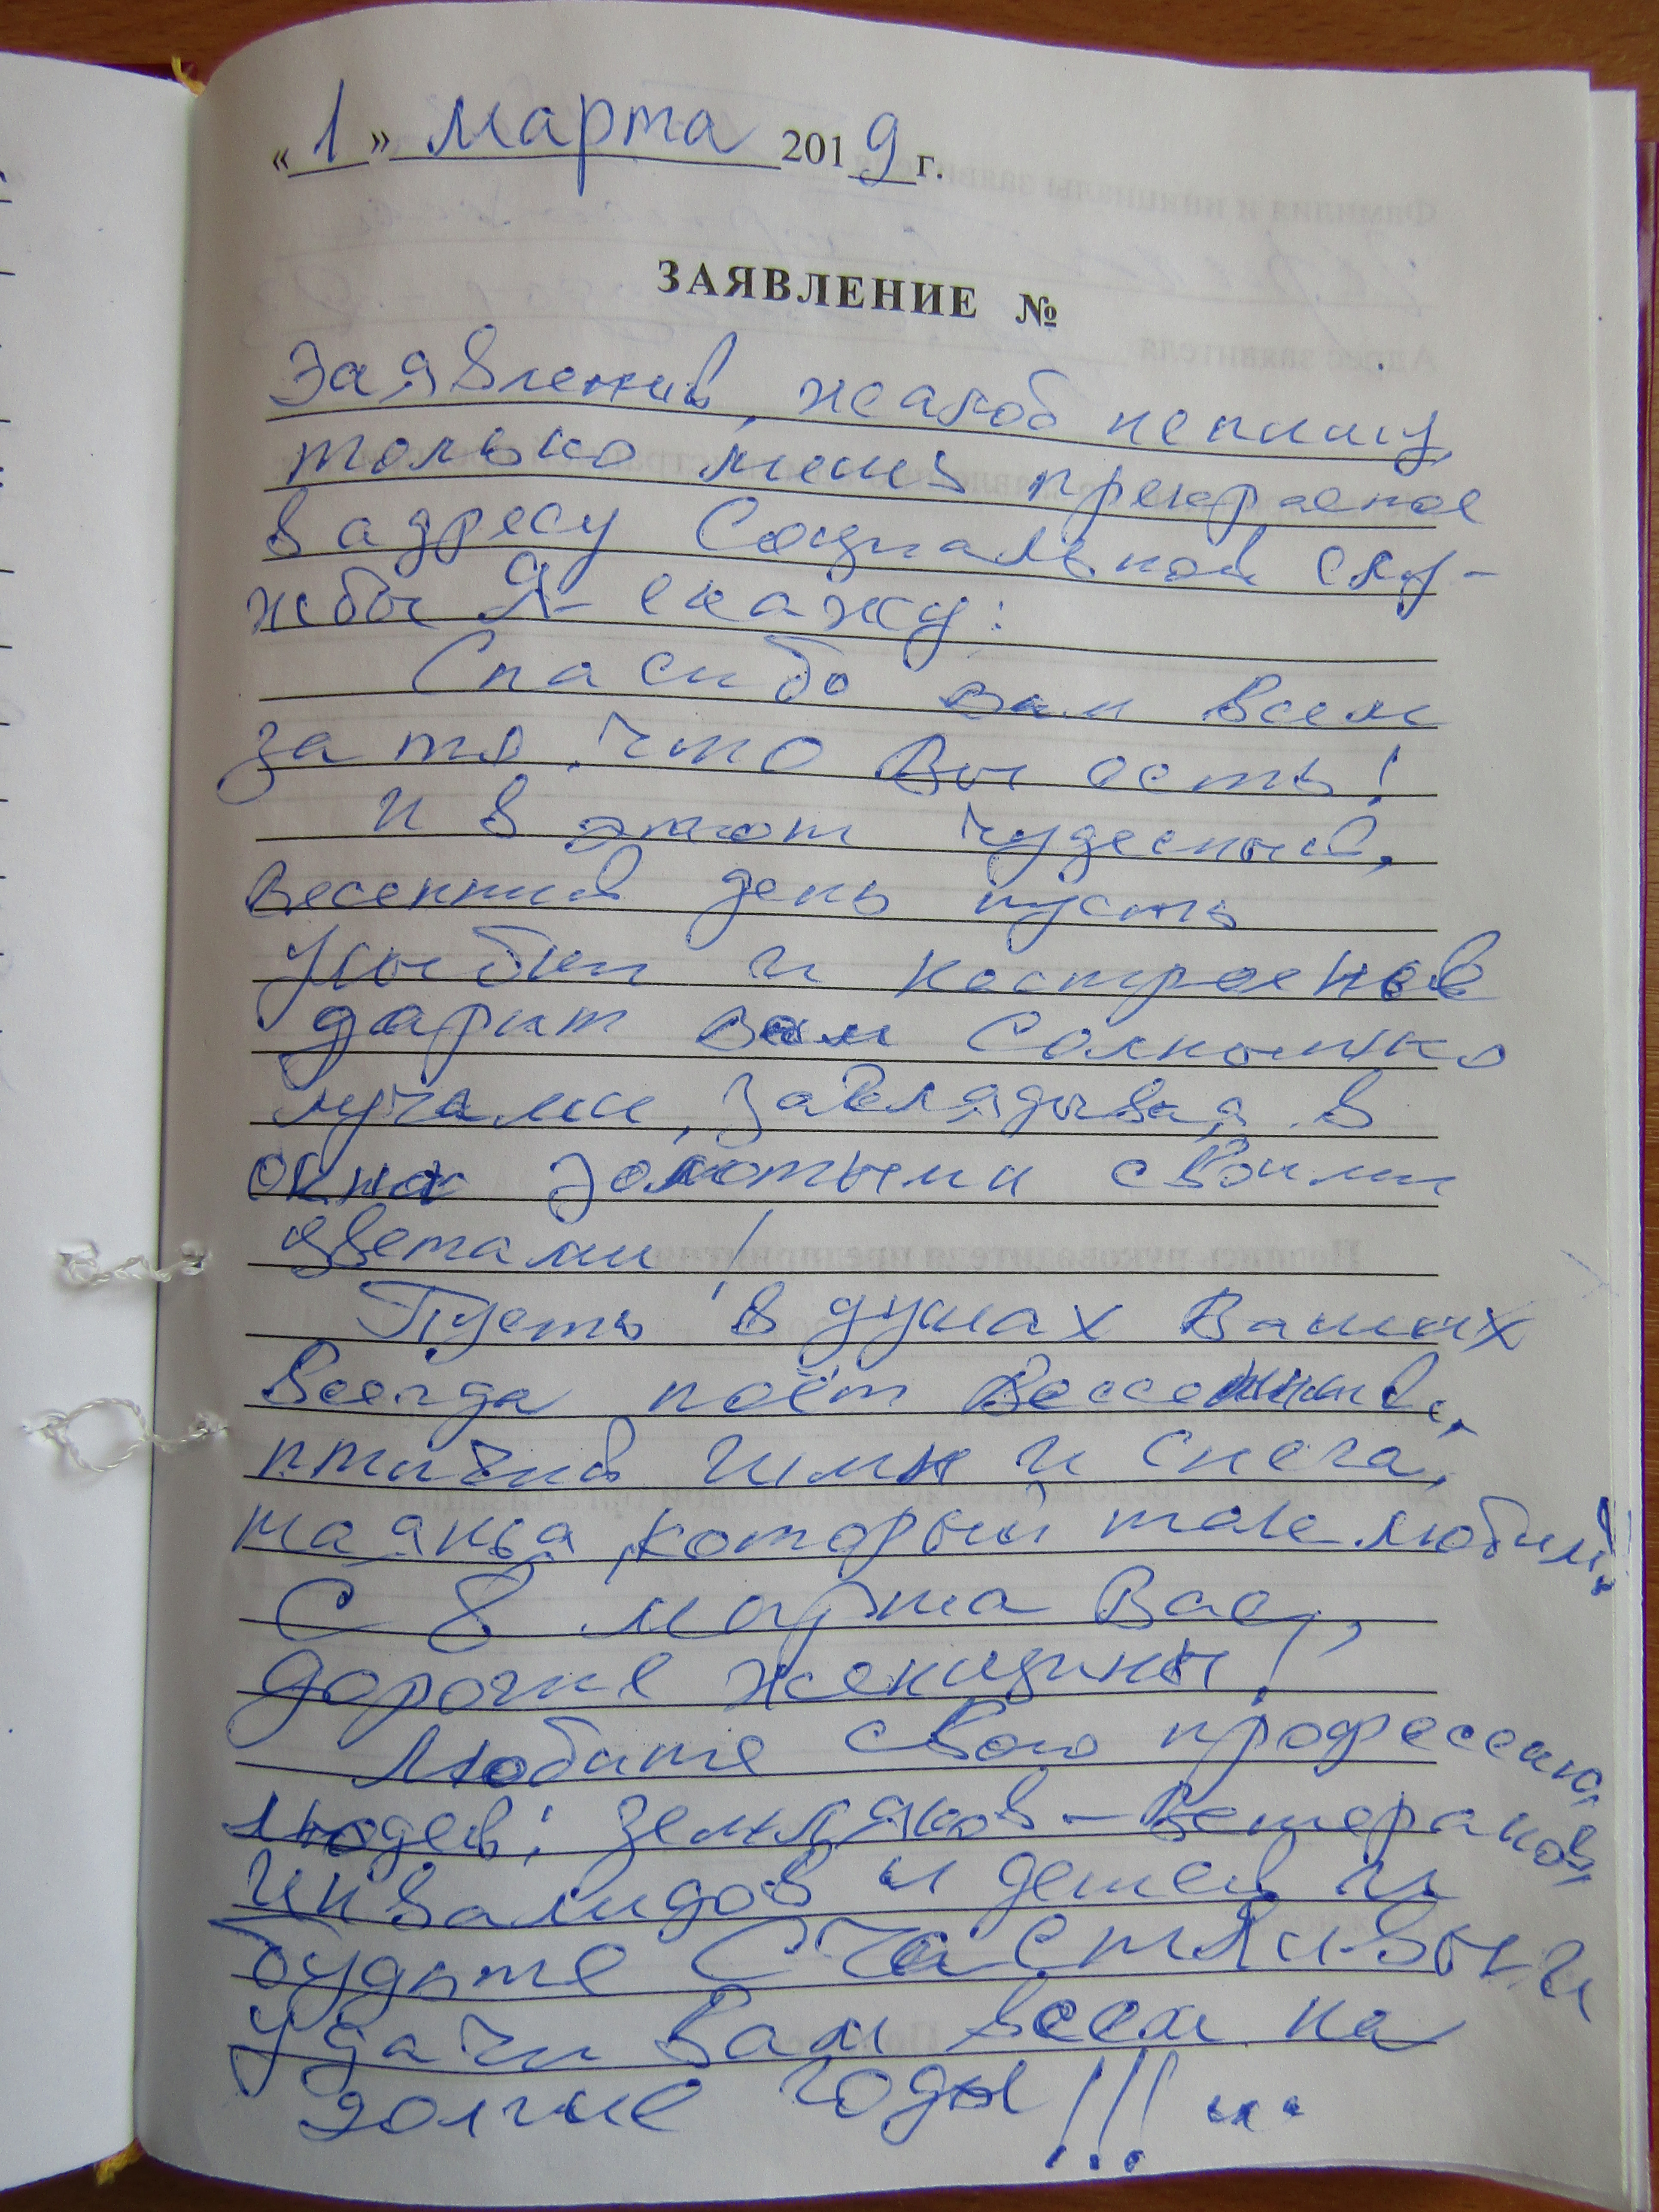 «1» марта 2019 г.
ЗАЯВЛЕНИЕ №
Заявлений, жалоб не пишу,
только лишь прекрасное
в адресу Социальной слу-
жбы Я- скажу:
Спасибо вам всем
за то, что Вы есть!
И в этот чудесный,
весенний день пусть
улыбки и настроение
дарит вам Солнышко
лучами, заглядывая в
окна золотыми своими
цветами!
Пусть в душах Ваших
всегда поёт Весенний,
птичий гимн и снега,
таянья, который так любим!
С 8 марта Вас,
дорогие женщины!
Любите свою профессию,
людей: земляков - ветеранов,
инвалидов и детей и
будьте Счастливы и
удачи Вам всем на
долгие годы!!! ...